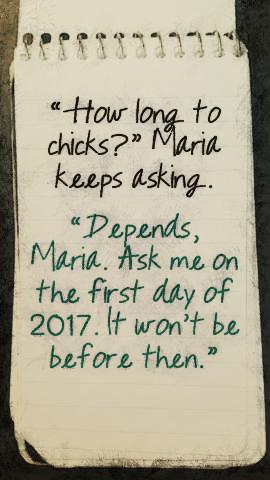 “How long to
chicks?” Maria
keeps asking.
“Depends,
Maria. Ask me on
the first day of
2017. It won't be
before then.”